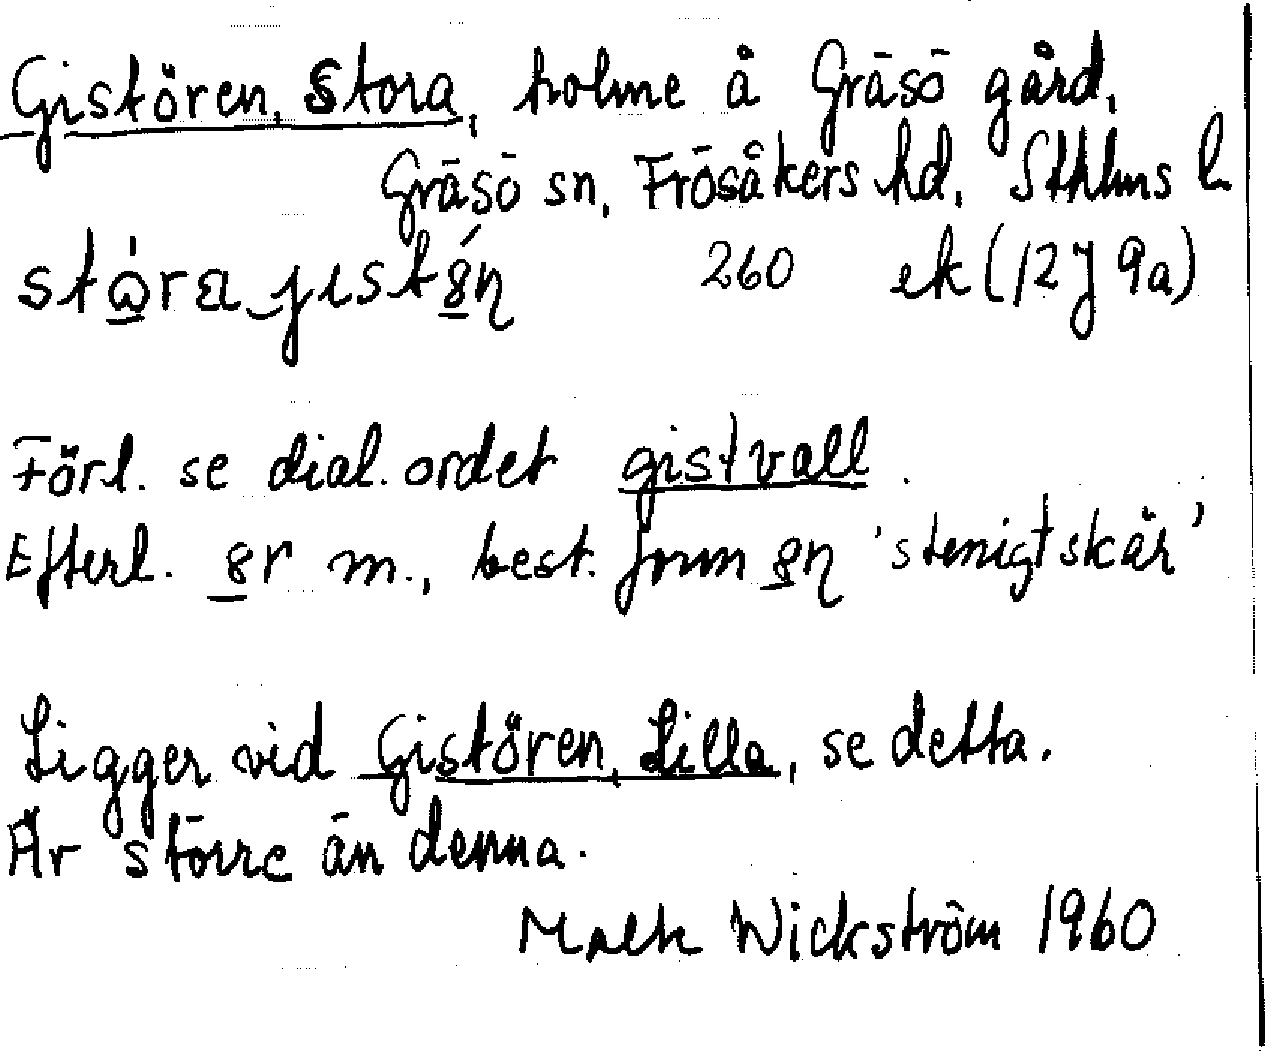 Gistören, Stora, holme å Gräsö gård,
Gräsö sn, Frösåkers hd, Sthlms l.
260 ek (12 J 9a)
Förl. se dial. ordet gistvall.
Efterl. 8r m., best. form 8n 'stenigt skär'
Ligger vid Gistören, Lilla, se detta.
Är större än denna.
Wickström 1960